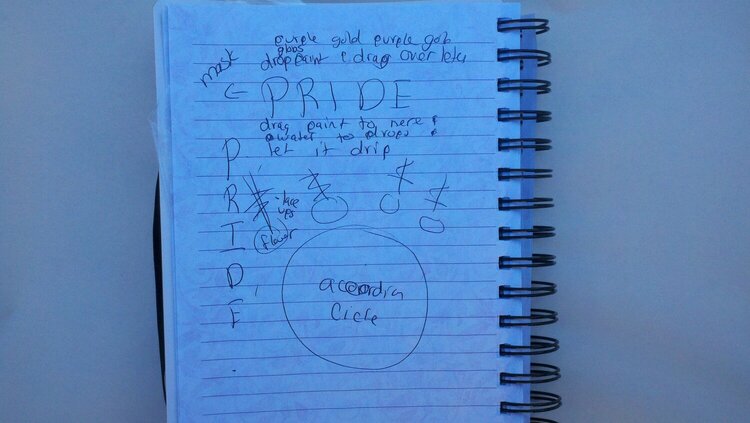 purple gold purple gob
gbos
drop paint & drag over lets
mask
PRIDE
drag paint to here &
water to drops &
let it drip
P
R
I
D
E
lace
ups
flower
accordin
Cicle